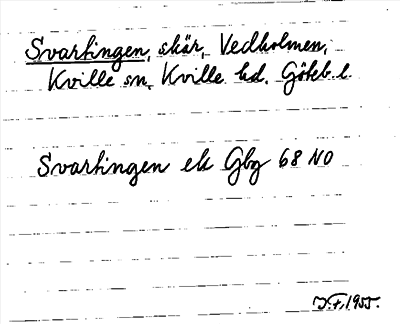 Svartingen, skär, Vedholmen,
Kville sn, Kville hd. Göteb. l.
Svartingen ek Gbg 68 NO
J.F. 1955.